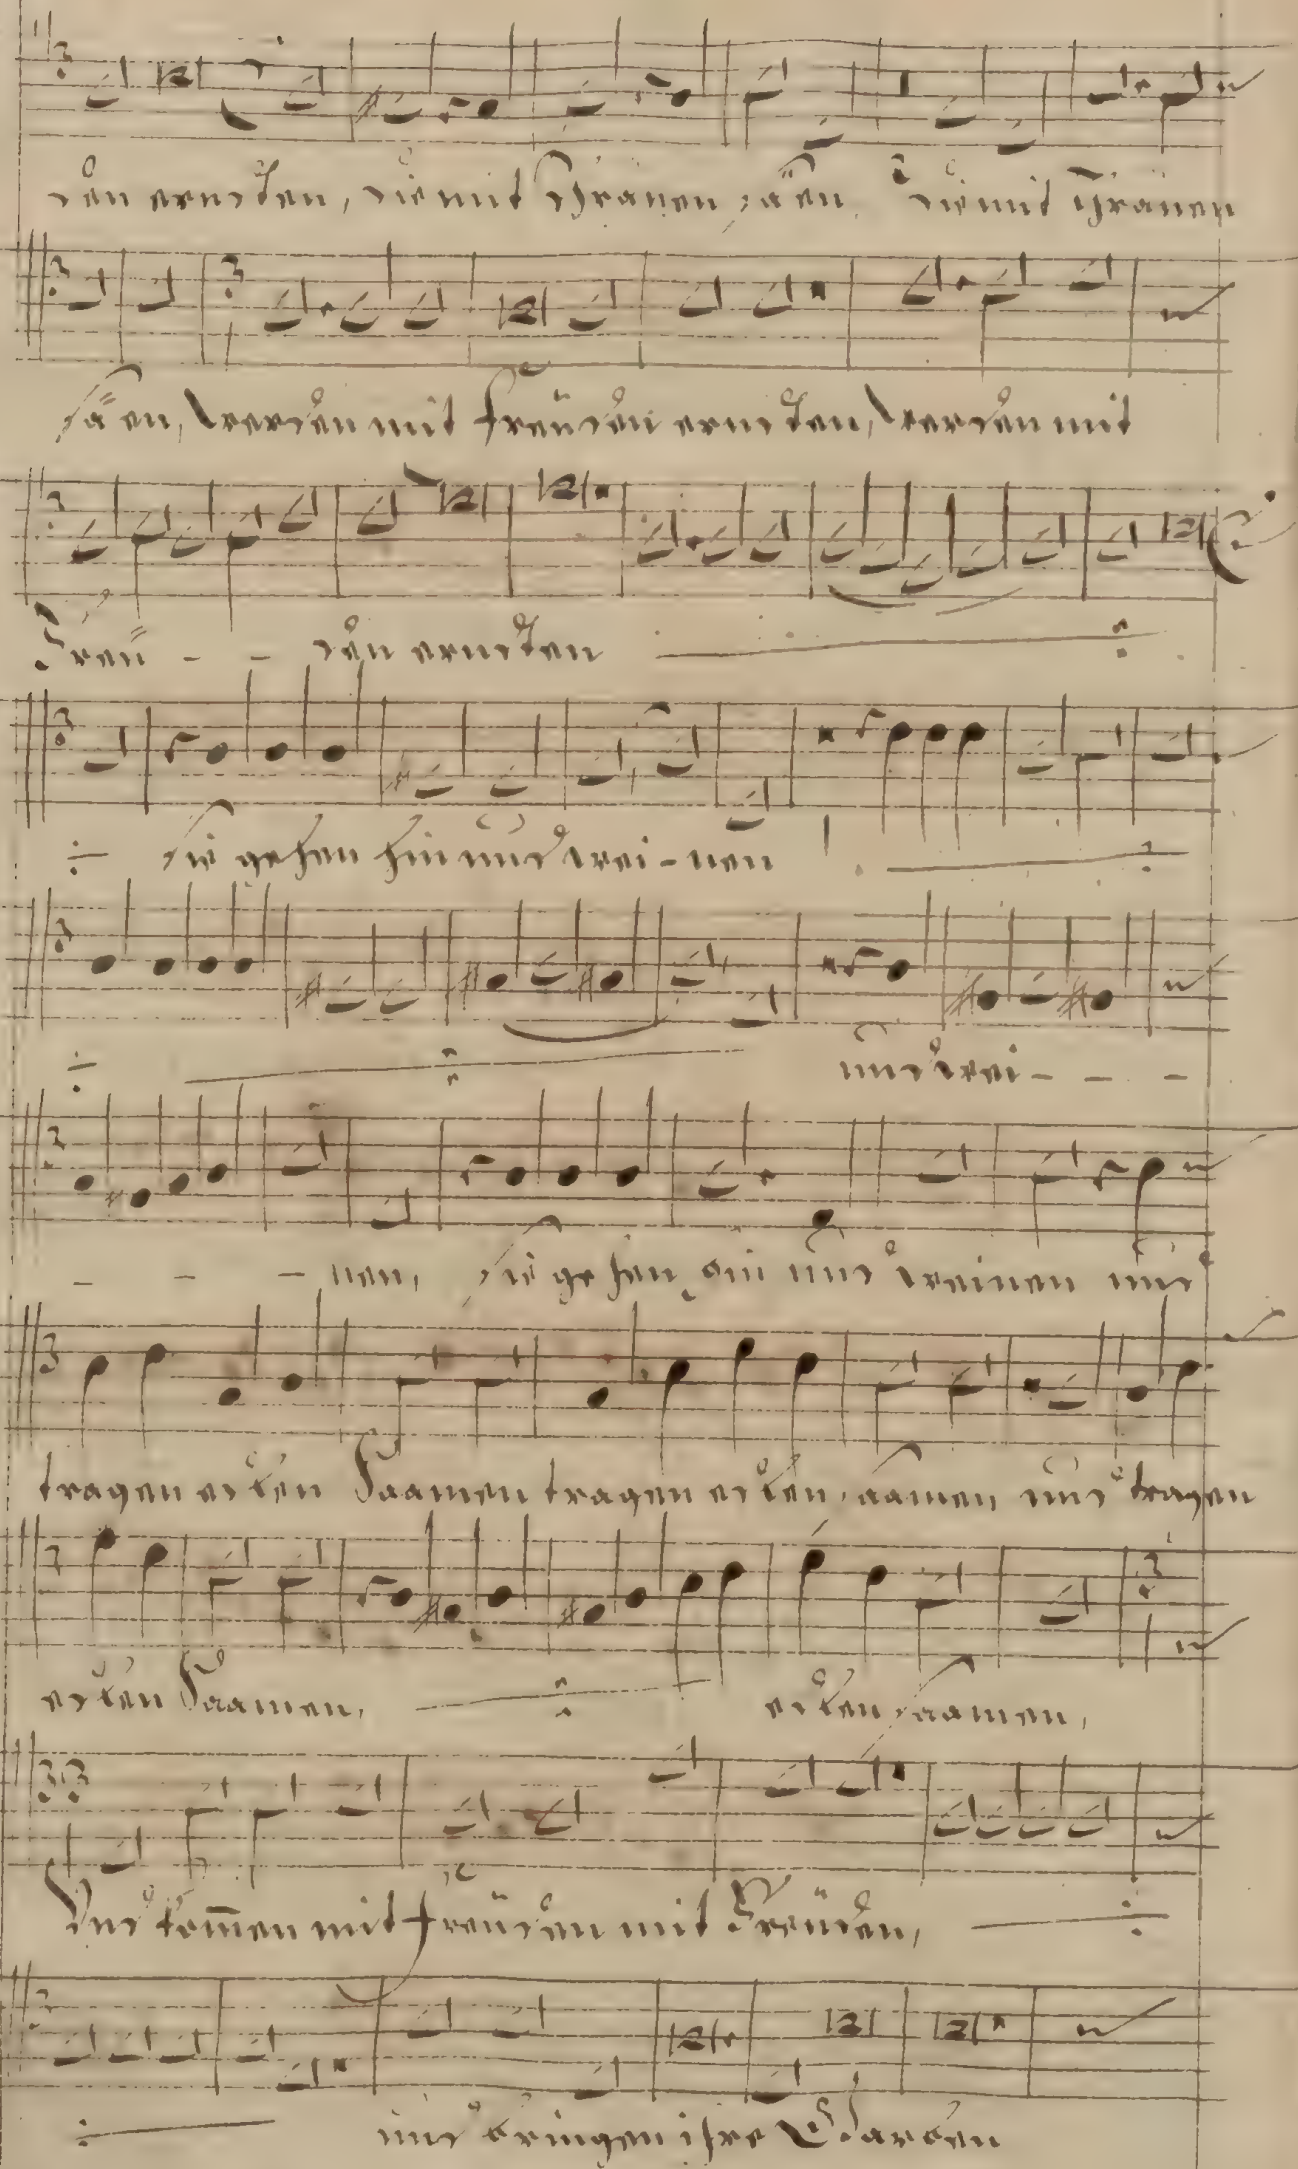 den erndten, die mit Thränen säen, die mit Thränen
säen, werden mit freüden erndten, werden mit
Freü - - den erndten
sie gehen hin und wei - nen
und wei - - -
- - - nen, sie gehen hin und weinen und
tragen edlen Saamen tragen edlen saamen, und tragen
edlen Saamen, edlen saamen,
Und kom̄en mit freüden mit Freüden,
und bringen ihre Garben